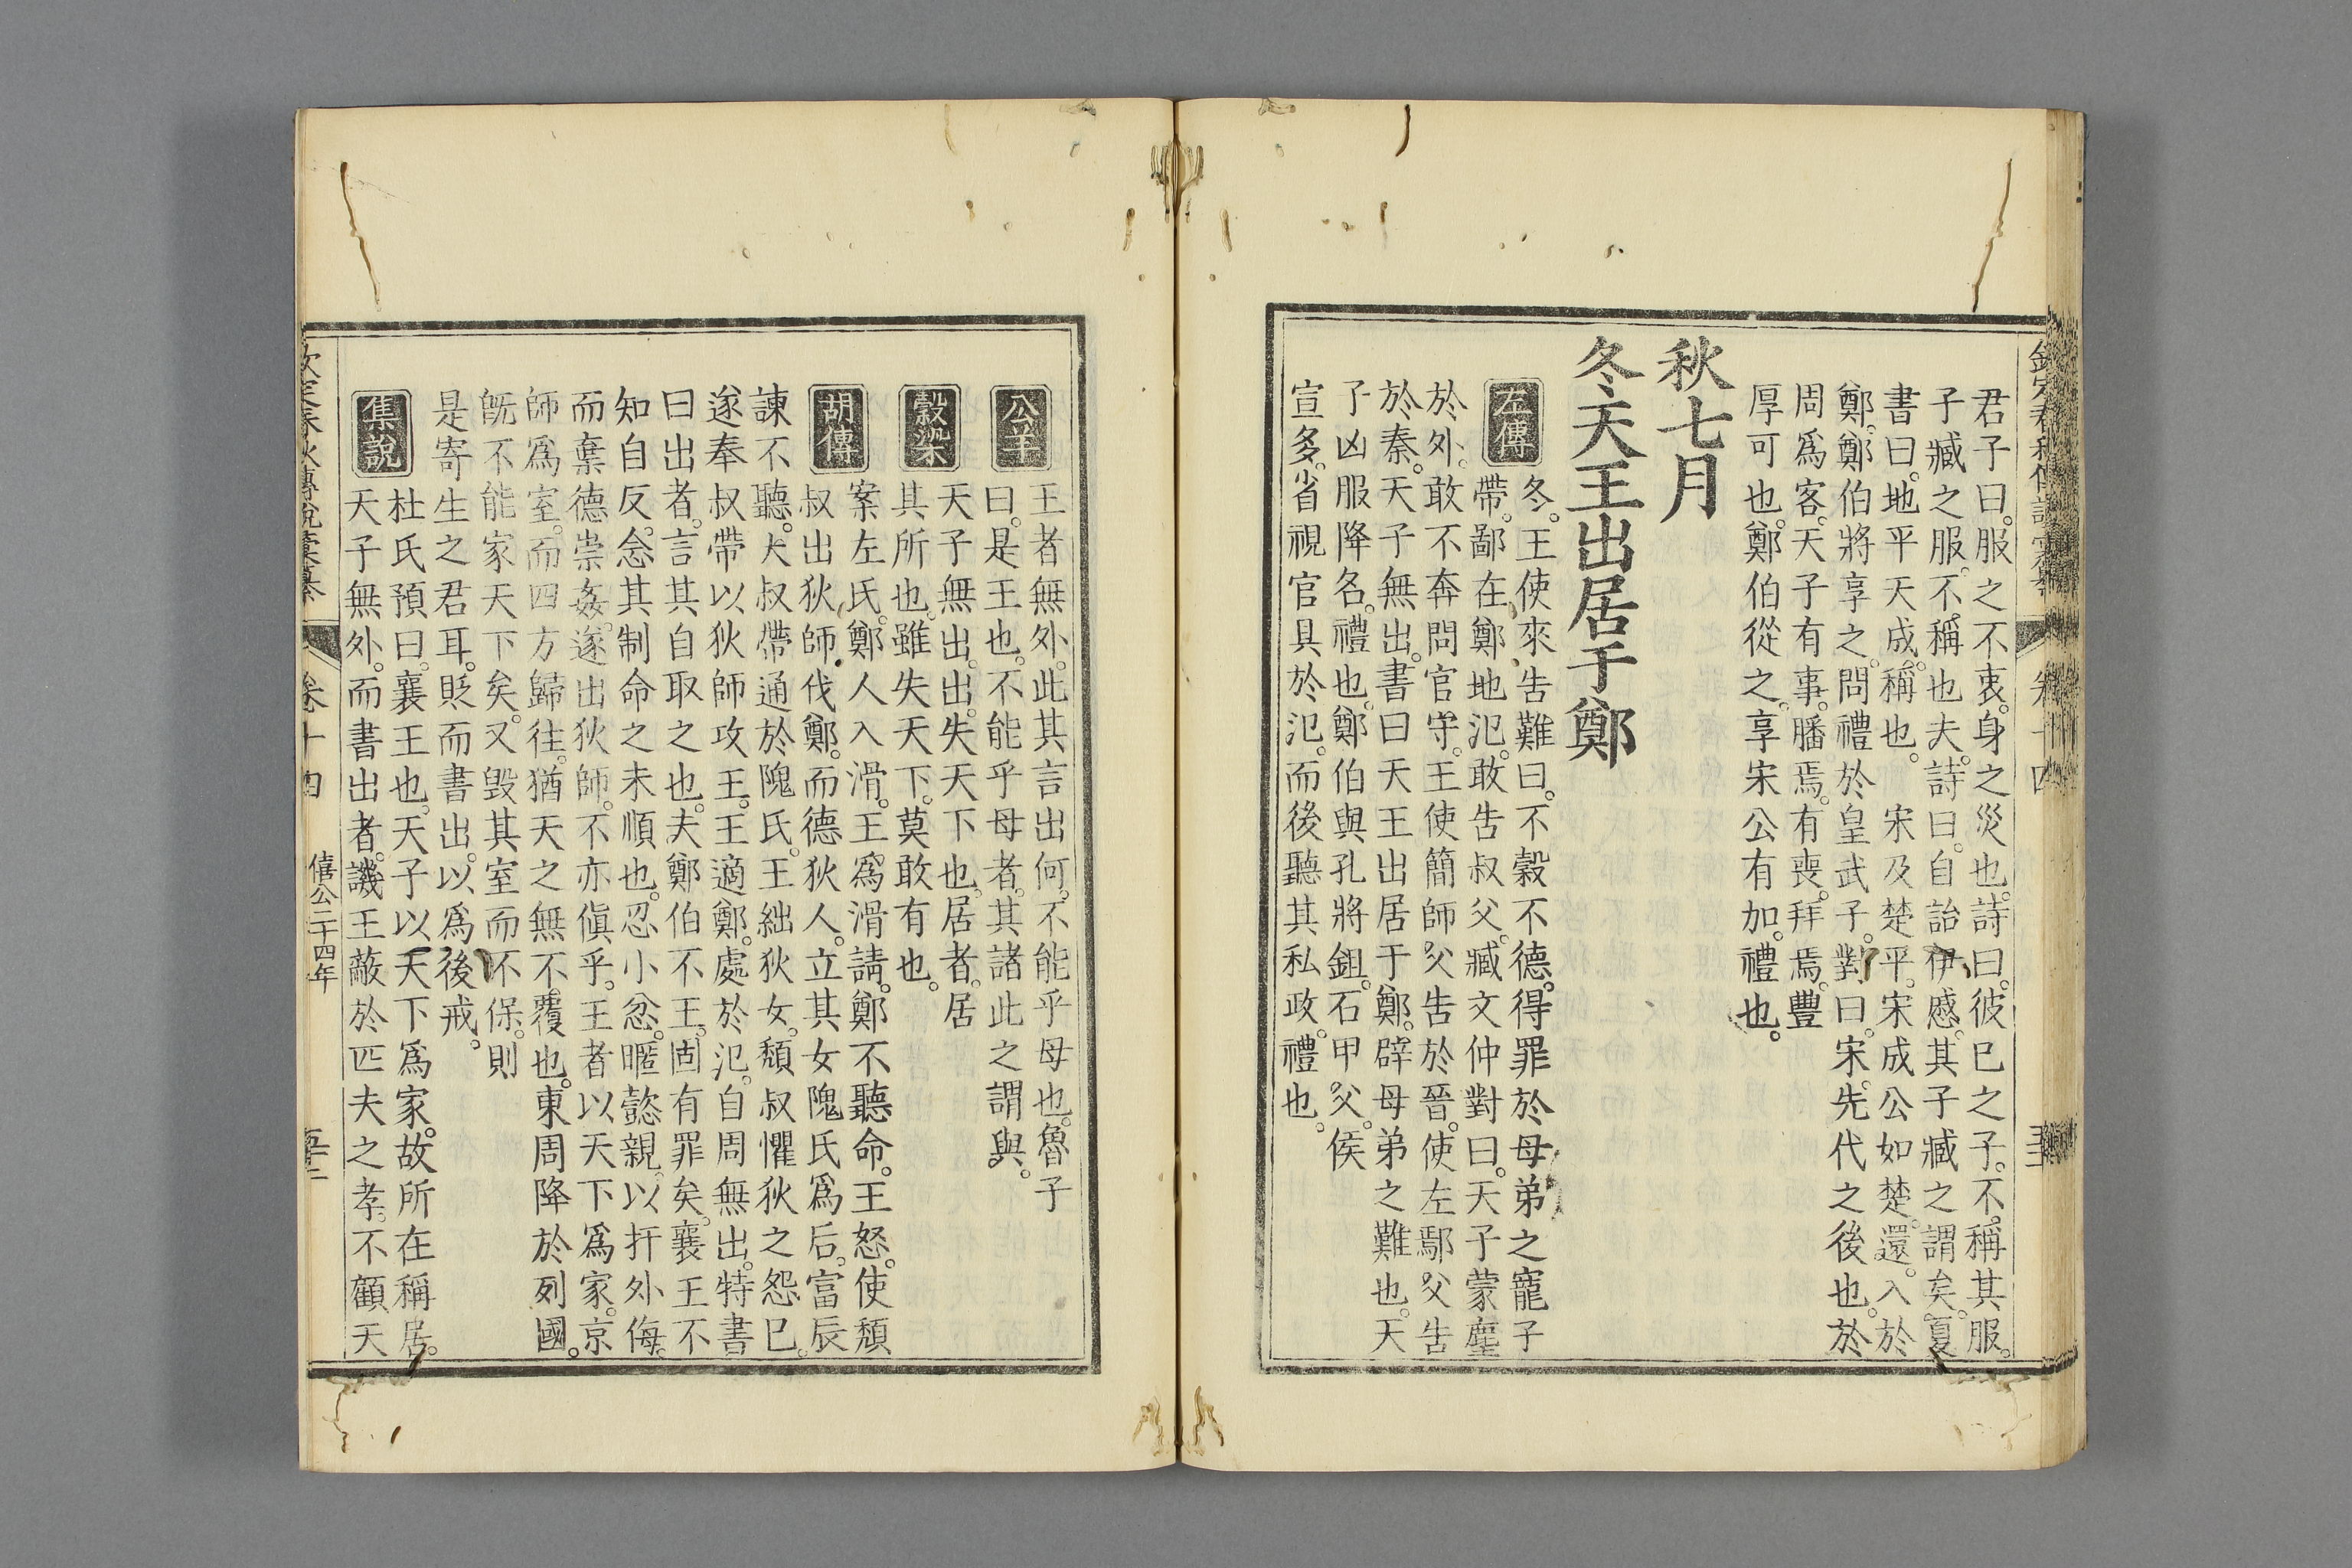 君子曰。服之不衷。身之災也。詩曰。彼己之子。不稱其服。
子臧之服。不稱也夫。詩曰。自詒伊慼。其子臧之謂矣。夏
書曰。地平天成。稱也。　宋及楚平。宋成公如楚。還。入於
鄭。鄭伯將享之。問禮於皇武子。對曰。宋。先代之後也。於
周爲客。天子有事。膰焉。有喪。拜焉。豐
厚可也。鄭伯從之。享宋公有加。禮也。
秋七月
冬天王出居于鄭
左傳
冬。王使來告難曰。不穀不德。得罪於母弟之寵子
帶。鄙在鄭地氾。敢告叔父。臧文仲對曰。天子蒙塵
於外。敢不奔問官守。王使簡師父告於晉。使左鄢父告
於秦。天子無出。書曰天王出居于鄭。辟母弟之難也。天
子凶服降名。禮也。鄭伯與孔將鉏。石甲父。侯
宣多。省視官具於氾。而後聽其私政。禮也。
公羊
王者無外。此其言出何。不能乎母也。魯子
曰。是王也。不能乎母者。其諸此之謂與。
穀梁
天子無出。出。失天下也。居者。居
其所也。雖失天下。莫敢有也。
胡傳
案左氏。鄭人入滑。王爲滑請。鄭不聽命。王怒。使頹
叔出狄師。伐鄭。而德狄人。立其女隗氏爲后。富辰
諫不聽。大叔帶通於隗氏。王絀狄女。頹叔懼狄之怨己。
遂奉叔帶以狄師攻王。王適鄭。處於氾。自周無出。特書
曰出者。言其自取之也。夫鄭伯不王。固有罪矣。襄王不
知自反。念其制命之未順也。忍小忿。暱懿親。以扞外侮。
而棄德崇姦。遂出狄師。不亦傎乎。王者以天下爲家。京
師爲室。而四方歸往。猶天之無不覆也。東周降於列國。
既不能家天下矣。又毀其室而不保。則
是寄生之君耳。貶而書出。以爲後戒。
集說
杜氏預曰。襄王也。天子以天下爲家。故所在稱居。
天子無外。而書出者。譏王蔽於匹夫之孝。不顧天
卷十四
僖公二十四年